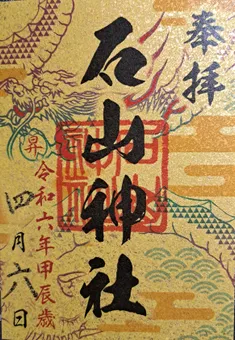 奉拝
石山神社
昇
令和六年甲辰歳
四月六日